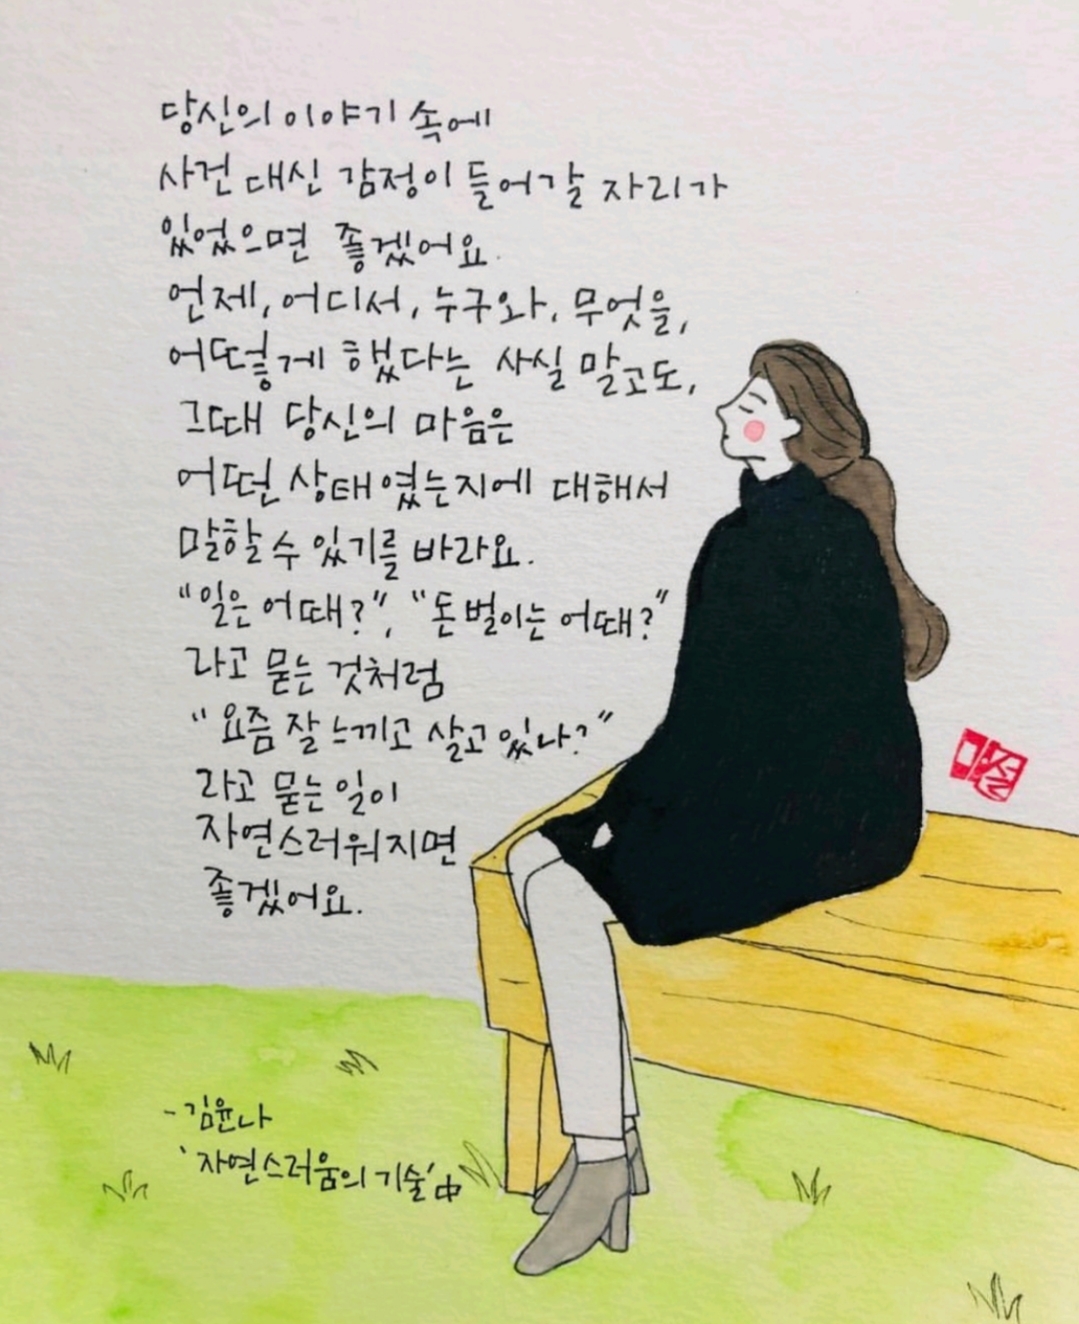 당신의 이야기 속에
사건 대신 감정이 들어갈 자리가
있었으면 좋겠어요.
언제, 어디서, 누구와, 무엇을,
어떻게 했다는 사실 말고도,
그때 당신의 마음은
어떤 상태였는지에 대해서
말할 수 있기를 바라요.
"일은 어때?", "돈벌이는 어때?"
라고 묻는 것처럼
"요즘 잘 느끼고 살고 있나?"
라고 묻는 일이
자연스러워지면
좋겠어요.
-김윤나
'자연스러움의 기술'中